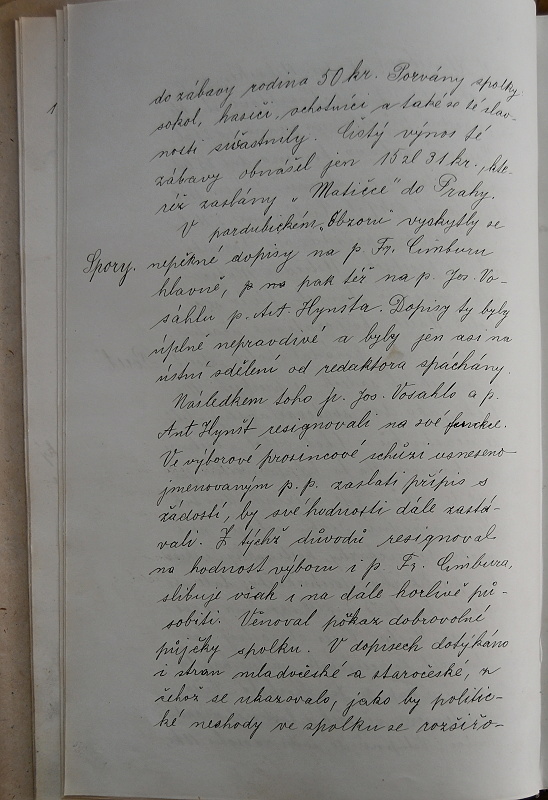 do zábavy rodina 50 kr. Porvány spolky
sokol, hasiči, ochotníci a také se té slav-
nosti súčastnily. Čistý výnos té
zábavy obnášel jen 15 zl 31 kr., kte-
réž zaslány „Matičce" do Prahy.
V pardubickém „Obzoru" vyskytly se
Spory. nepěkné dopisy na p. Fr. Cimburu
hlavně, pak též na p. Jos. Vo-
sáhlu p. Ant. Hynšta. Dopisy ty byly
úplně nepravdivé a byly jen asi na
ústní sdělení od redaktora spáchány.
Následkem toho p. Jos. Vosahlo a p.
Ant Hynšt resignovali na své funkce.
Ve výborové prosincové schůzi usneseno
jmenovaným p. p. zaslati přípis s
žádostí, by své hodnosti dále zastá-
vali. Z týchž důvodů resignoval
na hodnost výboru i p Fr. Cimbura,
slibuje však i na dále horlivě pů-
sobiti. Věnoval pokaz dobrovolné
půjčky spolku. V dopisech dotýkáno
i stran mladočeské a staročeské, z
čehož se ukazovalo, jako by politic-
ké neshody ve spolku se rozšiřo-